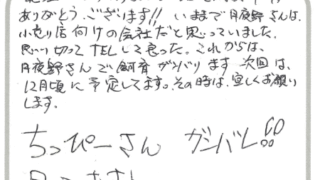 ありがとうございます!! いままで月夜野さんは、
小売り店向けの会社だと思っていました。
思い切ってTELして良った。これからは、
月夜野さんで飼育ガンバリます 次回は、
12月頃に予定してます。その時は、宜しくお願い
します。
ちっぴーさん ガンバレ!!